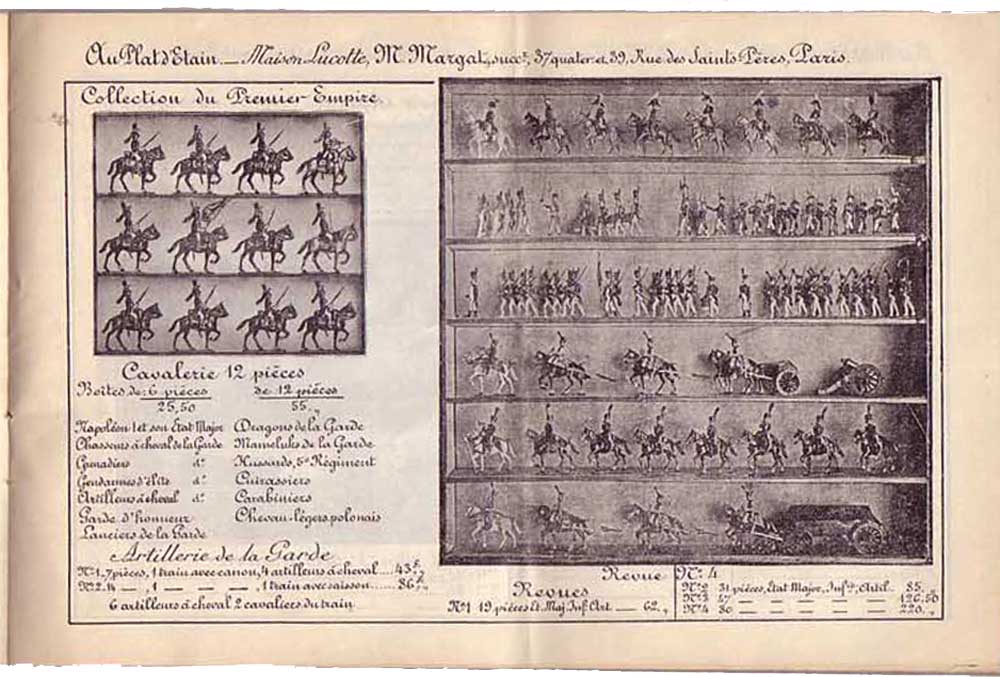 Au Plat d'Etain._ Maison Lucotte, M. Margat, succr, 37 quater et 39, Rue des Saints Pères, Paris.
Collection du Premier Empire
Cavalerie 12 pièces
Boites de: 6 pièces de 12 pièces
25,50 55 "
Napoléon 1 et son État Major Dragons de la Garde
Chasseurs à cheval de la Garde Mameluks de la Garde
Grenadiers d° Hussards, 5e Régiment
Gendarmes d'élite d° Cuirassiers
Artilleurs à cheval d° Carabiniers
Garde d'honneur Chevau-légers polonais
Lanciers de la Garde
Artillerie de la Garde
N°1. 7 pièces, 1 train avec canon, 4 artilleurs à cheval .... 43f "
N°2. 14 _ , 1 _ _ _ , 1 train avec caisson .... 86f "
6 artilleurs à cheval 2 cavaliers du train
Revue N° 4
Revues
N°1 19 pièces Et. Maj. Inf. Art. __ 62. "
N°2 31 pièces, État Major, Infie, Artil.. 85. "
N°3 47 _ _ _ _ 126,50
N°4 80 _ _ _ _ 220. "